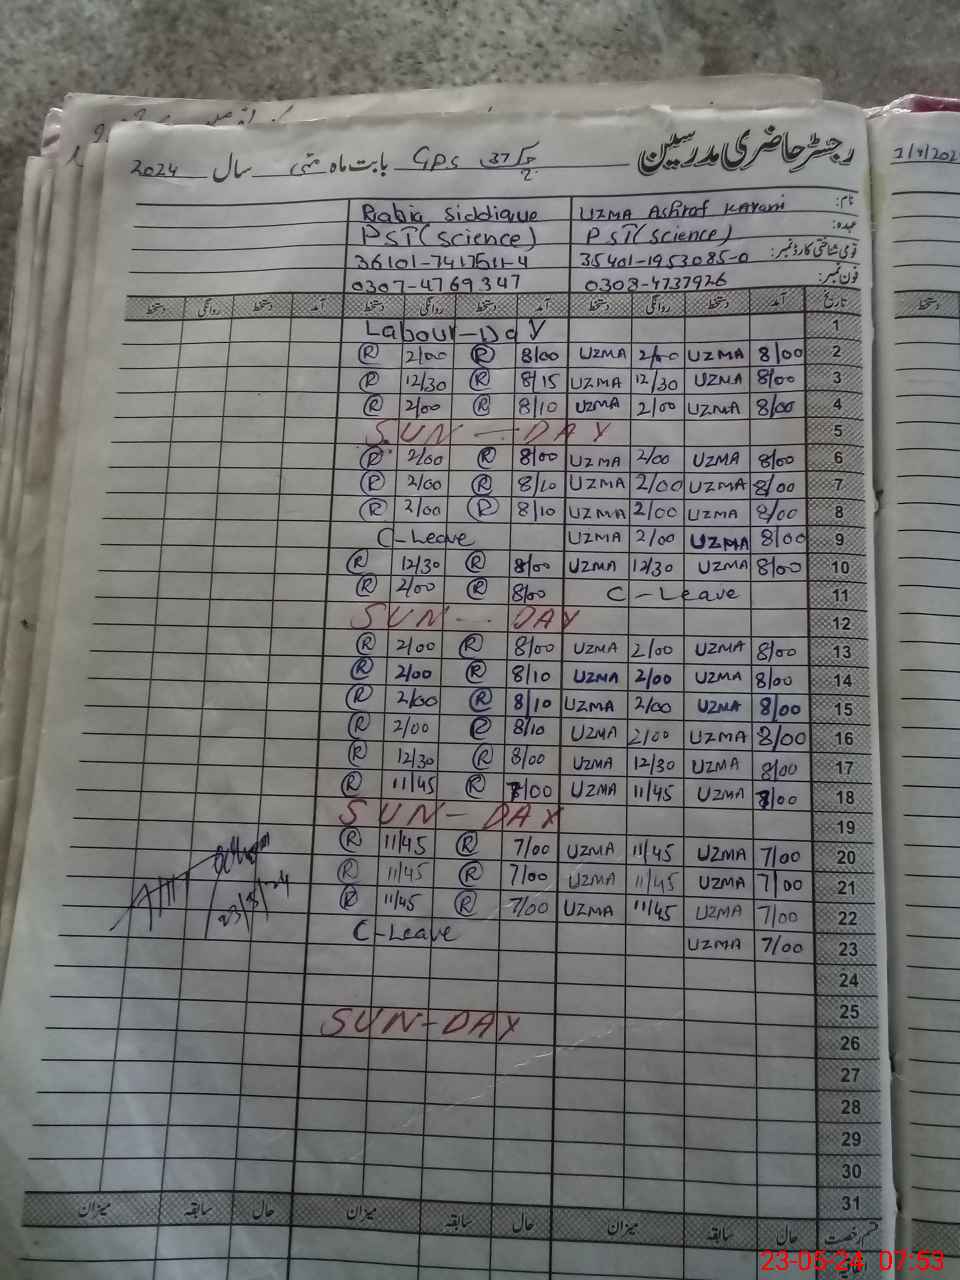 رجسٹر حاضری مدرسین GPS 37 بابت ماہ مئی سال 2024
نام: UZMA Ashraf Karami Rabia Siddique
عہدہ: PST (Science) PST (Science)
قومی شناختی کارڈ نمبر: 35401-1953085-0 36101-7417511-4
فون نمبر: 0308-4737926 0307-4769347
تاریخ آمد دستخط روانگی دستخط آمد دستخط روانگی دستخط آمد دستخط روانگی دستخط
1 Labour-Day
2 8/00 UZMA 2/00 UZMA 8/00 R 2/00 R
3 8/00 UZMA 12/30 UZMA 8/15 R 12/30 R
4 8/00 UZMA 2/00 UZMA 8/10 R 2/00 R
5 SUN-DAY
6 8/00 UZMA 2/00 UZMA 8/00 R 2/00 R
7 8/00 UZMA 2/00 UZMA 8/10 R 2/00 R
8 8/00 UZMA 2/00 UZMA 8/10 R 2/00 R
9 8/00 UZMA 2/00 UZMA C-Leave
10 8/00 UZMA 12/30 UZMA 8/00 R 12/30 R
11 C-Leave 8/00 R 2/00 R
12 SUN-DAY
13 8/00 UZMA 2/00 UZMA 8/00 R 2/00 R
14 8/00 UZMA 2/00 UZMA 8/10 R 2/00 R
15 8/00 UZMA 2/00 UZMA 8/10 R 2/00 R
16 8/00 UZMA 2/00 UZMA 8/10 R 2/00 R
17 8/00 UZMA 12/30 UZMA 8/00 R 12/30 R
18 7/00 UZMA 11/45 UZMA 7/00 R 11/45 R
19 SUN-DAY
20 7/00 UZMA 11/45 UZMA 7/00 R 11/45 R
21 7/00 UZMA 11/45 UZMA 7/00 R 11/45 R
22 7/00 UZMA 11/45 UZMA 7/00 R 11/45 R
23 7/00 UZMA C-Leave
24
25
26 SUN-DAY
27
28
29
30
31
قسم رخصت حال سابقہ میزان حال سابقہ میزان حال سابقہ میزان
23/5/24
دستخط
23-05-24 07:53